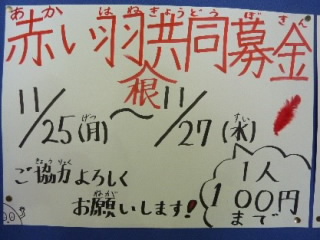 あか はねきょうどう ぼ きん
赤い羽共同募金
根
げつ すい
11/25(月)〜11/27(水)
きょうりょく
ご協力よろしく
ねが
お願いします!
1人
100円
まで